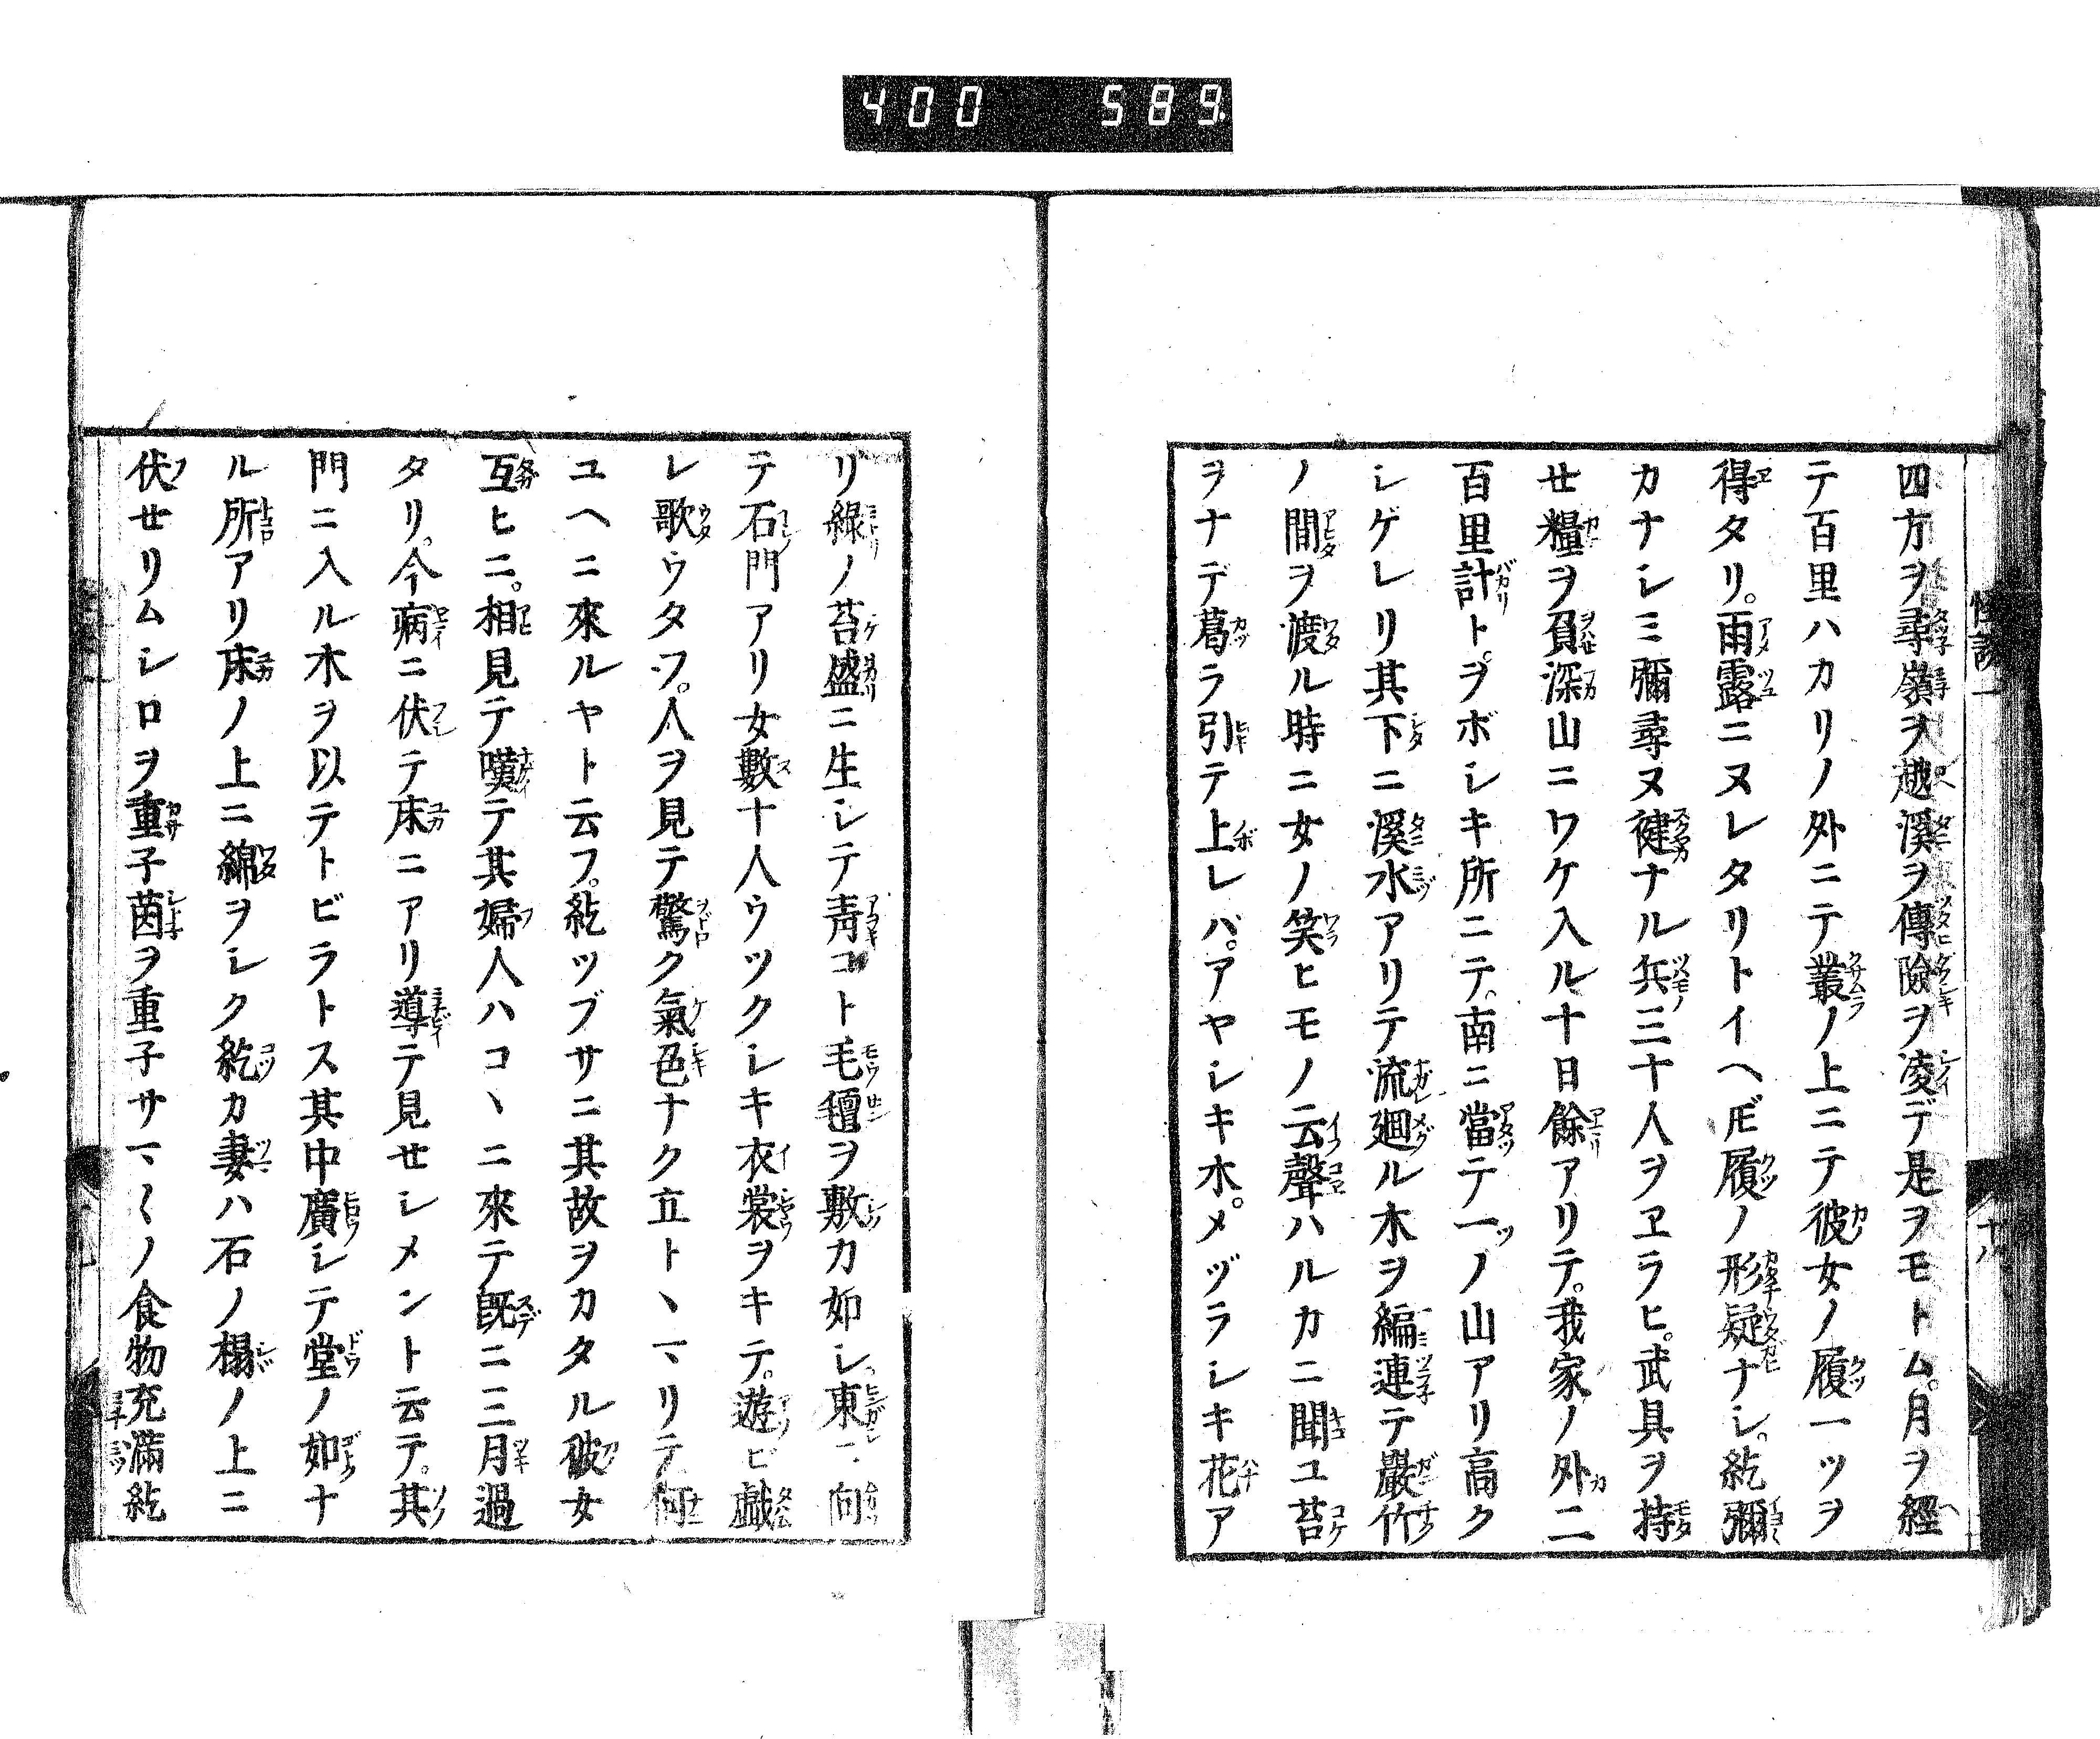 400 589
怪談一
十八
四方ヲ尋嶺ヲ越溪ヲ傳險ヲ凌デ是ヲモトム。月ヲ經
テ百里ハカリノ外ニテ叢ノ上ニテ彼女ノ履一ツヲ
得タリ。雨露ニヌレタリトイヘ𪜈履ノ形疑ナシ。紇彌
カナシミ彌尋ヌ健ナル兵三十人ヲヱラヒ。武具ヲ持
せ糧ヲ負深山ニワケ入ル十日餘アリテ。我家ノ外二
百里計ト。ヲボシキ所ニテ。南ニ當テ一ノ山アリ高ク
シゲレリ其下ニ溪水アリテ流廻ル木ヲ編連テ巖竹
ノ間ヲ渡ル時ニ女ノ笑ヒモノ云聲ハルカニ聞ユ苔
ヲナデ葛ラ引テ上レバ。アヤシキ木。メヅラシキ花ア
リ綠ノ苔盛ニ生シテ靑コト毛氊ヲ敷カ如シ。東ニ向
テ石門アリ女數十人ウツクシキ衣裳ヲキテ。遊ビ戯
レ歌ウタフ。人ヲ見テ驚ク氣色ナク立トヽマリテ何
ユヘニ來ルヤト云フ。紇ツブサニ其故ヲカタル彼女
互ヒニ。相見テ嘆テ其婦人ハコヽニ來テ既ニ三月過
タリ。今病ニ伏テ床ニアリ導テ見せシメント云テ。其
門ニ入ル木ヲ以テトビラトス其中廣シテ堂ノ如ナ
ル所アリ床ノ上ニ綿ヲシク紇カ妻ハ石ノ榻ノ上ニ
伏せリムシロヲ重子茵ヲ重子サマ〱ノ食物充滿紇